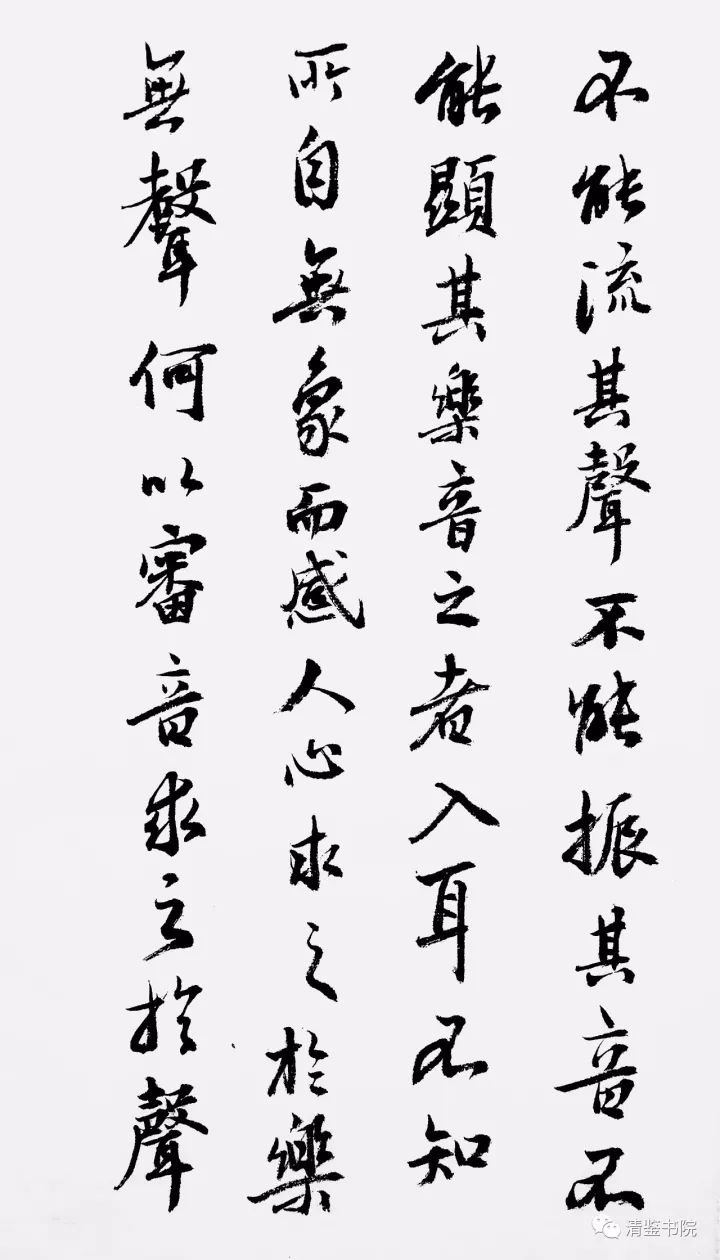 不能流其聲不能振其音不
能顯其樂音之者入耳不知
所自無象而感人心求之於樂
無聲何以審音求之於聲
清鉴书院